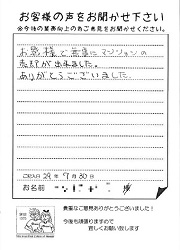 お客様の声をお聞かせ下さい
※今後の業務向上の為ご意見をお聞かせください。
お蔭様で無事にマンションの
売却が出来ました。
ありがとうございました。
ご記入日 29年 7月 30日
お名前
貴重なご意見ありがとうございました!
今後も頑張りますので
宜しくお願い致します